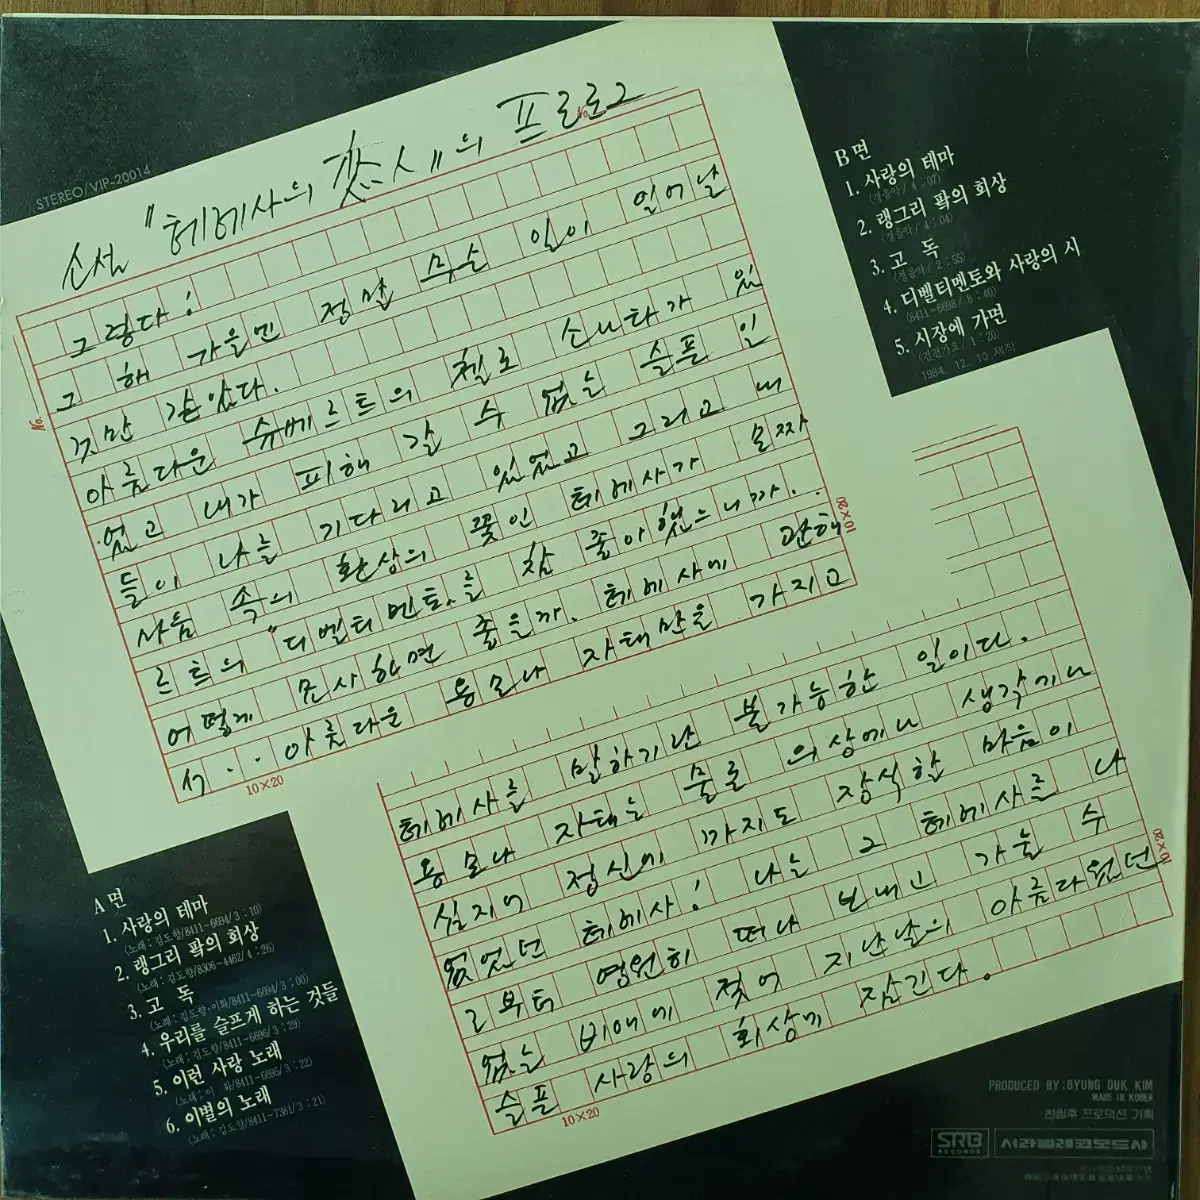 STEREO/VIP-20014
소설 "헤레사의 恋人"의 프롤로그
No.
그렇다!
그 해 가을엔 정말 무슨 일이 일어날
것만 같았다.
아름다운 슈베르트의 첼로 소나타가 있
었고 내가 피해 갈 수 없는 슬픈 일
들이 나를 기다리고 있었고 그리고 내
사듬 속의 환상의 꽃인 헤레사가 모짜
르트의 "디벨티멘토"를 참 좋아했으니까..
어떻게 묘사하면 좋을까. 헤레사에 관해
서.. 아름다운 용모나 자태만을 가지고
No.
10×20
10×20
헤레사를 말하기란 불가능한 일이다.
용모나 자태는 물론 의상에나 생각에나
심지어 정신에 까지도 장식한 마음이
없었던 헤레사! 나는 그 헤레사를 나
로부터 영원히 떠나 보내고 가눌 수
없는 비애에 젖어 지난날의 아름다웠던
슬픈 사랑의 회상에 잠긴다.
10×20
10×20
B면
1. 사랑의 테마
(경음악/4:07)
2. 랭그리 팍의 회상
(경음악/4:04)
3. 고 독
(경음악/2:55)
4. 디벨티멘토와 사랑의 시
(8411-6698/8:40)
5. 시장에 가면
(건전가요/1:20)
1984. 12. 10 제작
A면
1. 사랑의 테마
(노래:김도향/8411-6694/3:10)
2. 랭그리 팍의 회상
(노래:김도향/8306-4462/4:26)
3. 고 독
(노래:김도향·이화/8411-6694/3:00)
4. 우리를 슬프게 하는 것들
(노래:김도향/8411-6696/3:29)
5. 이런 사랑 노래
(노래:이 화/8411-6695/3:22)
6. 이별의 노래
(노래:김도향/8411-7381/3:21)
PRODUCED BY:BYUNG DUK KIM
MADE IN KOREA
프로덕션 기획
SRB RECORDS
서라벌레코드사